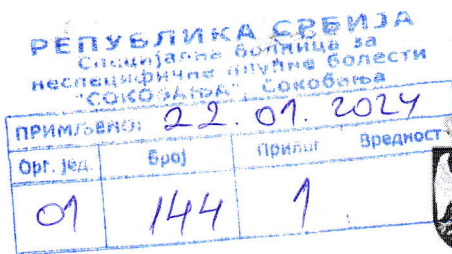 РЕПУБЛИКА СРБИЈА
Специјална болница за
неспецифичне плућне болести
"СОКОБАЊА", Сокобања
ПРИМЉЕНО: 22. 01. 2024
Орг. јед. Број Прилог Вредност
01 144 1